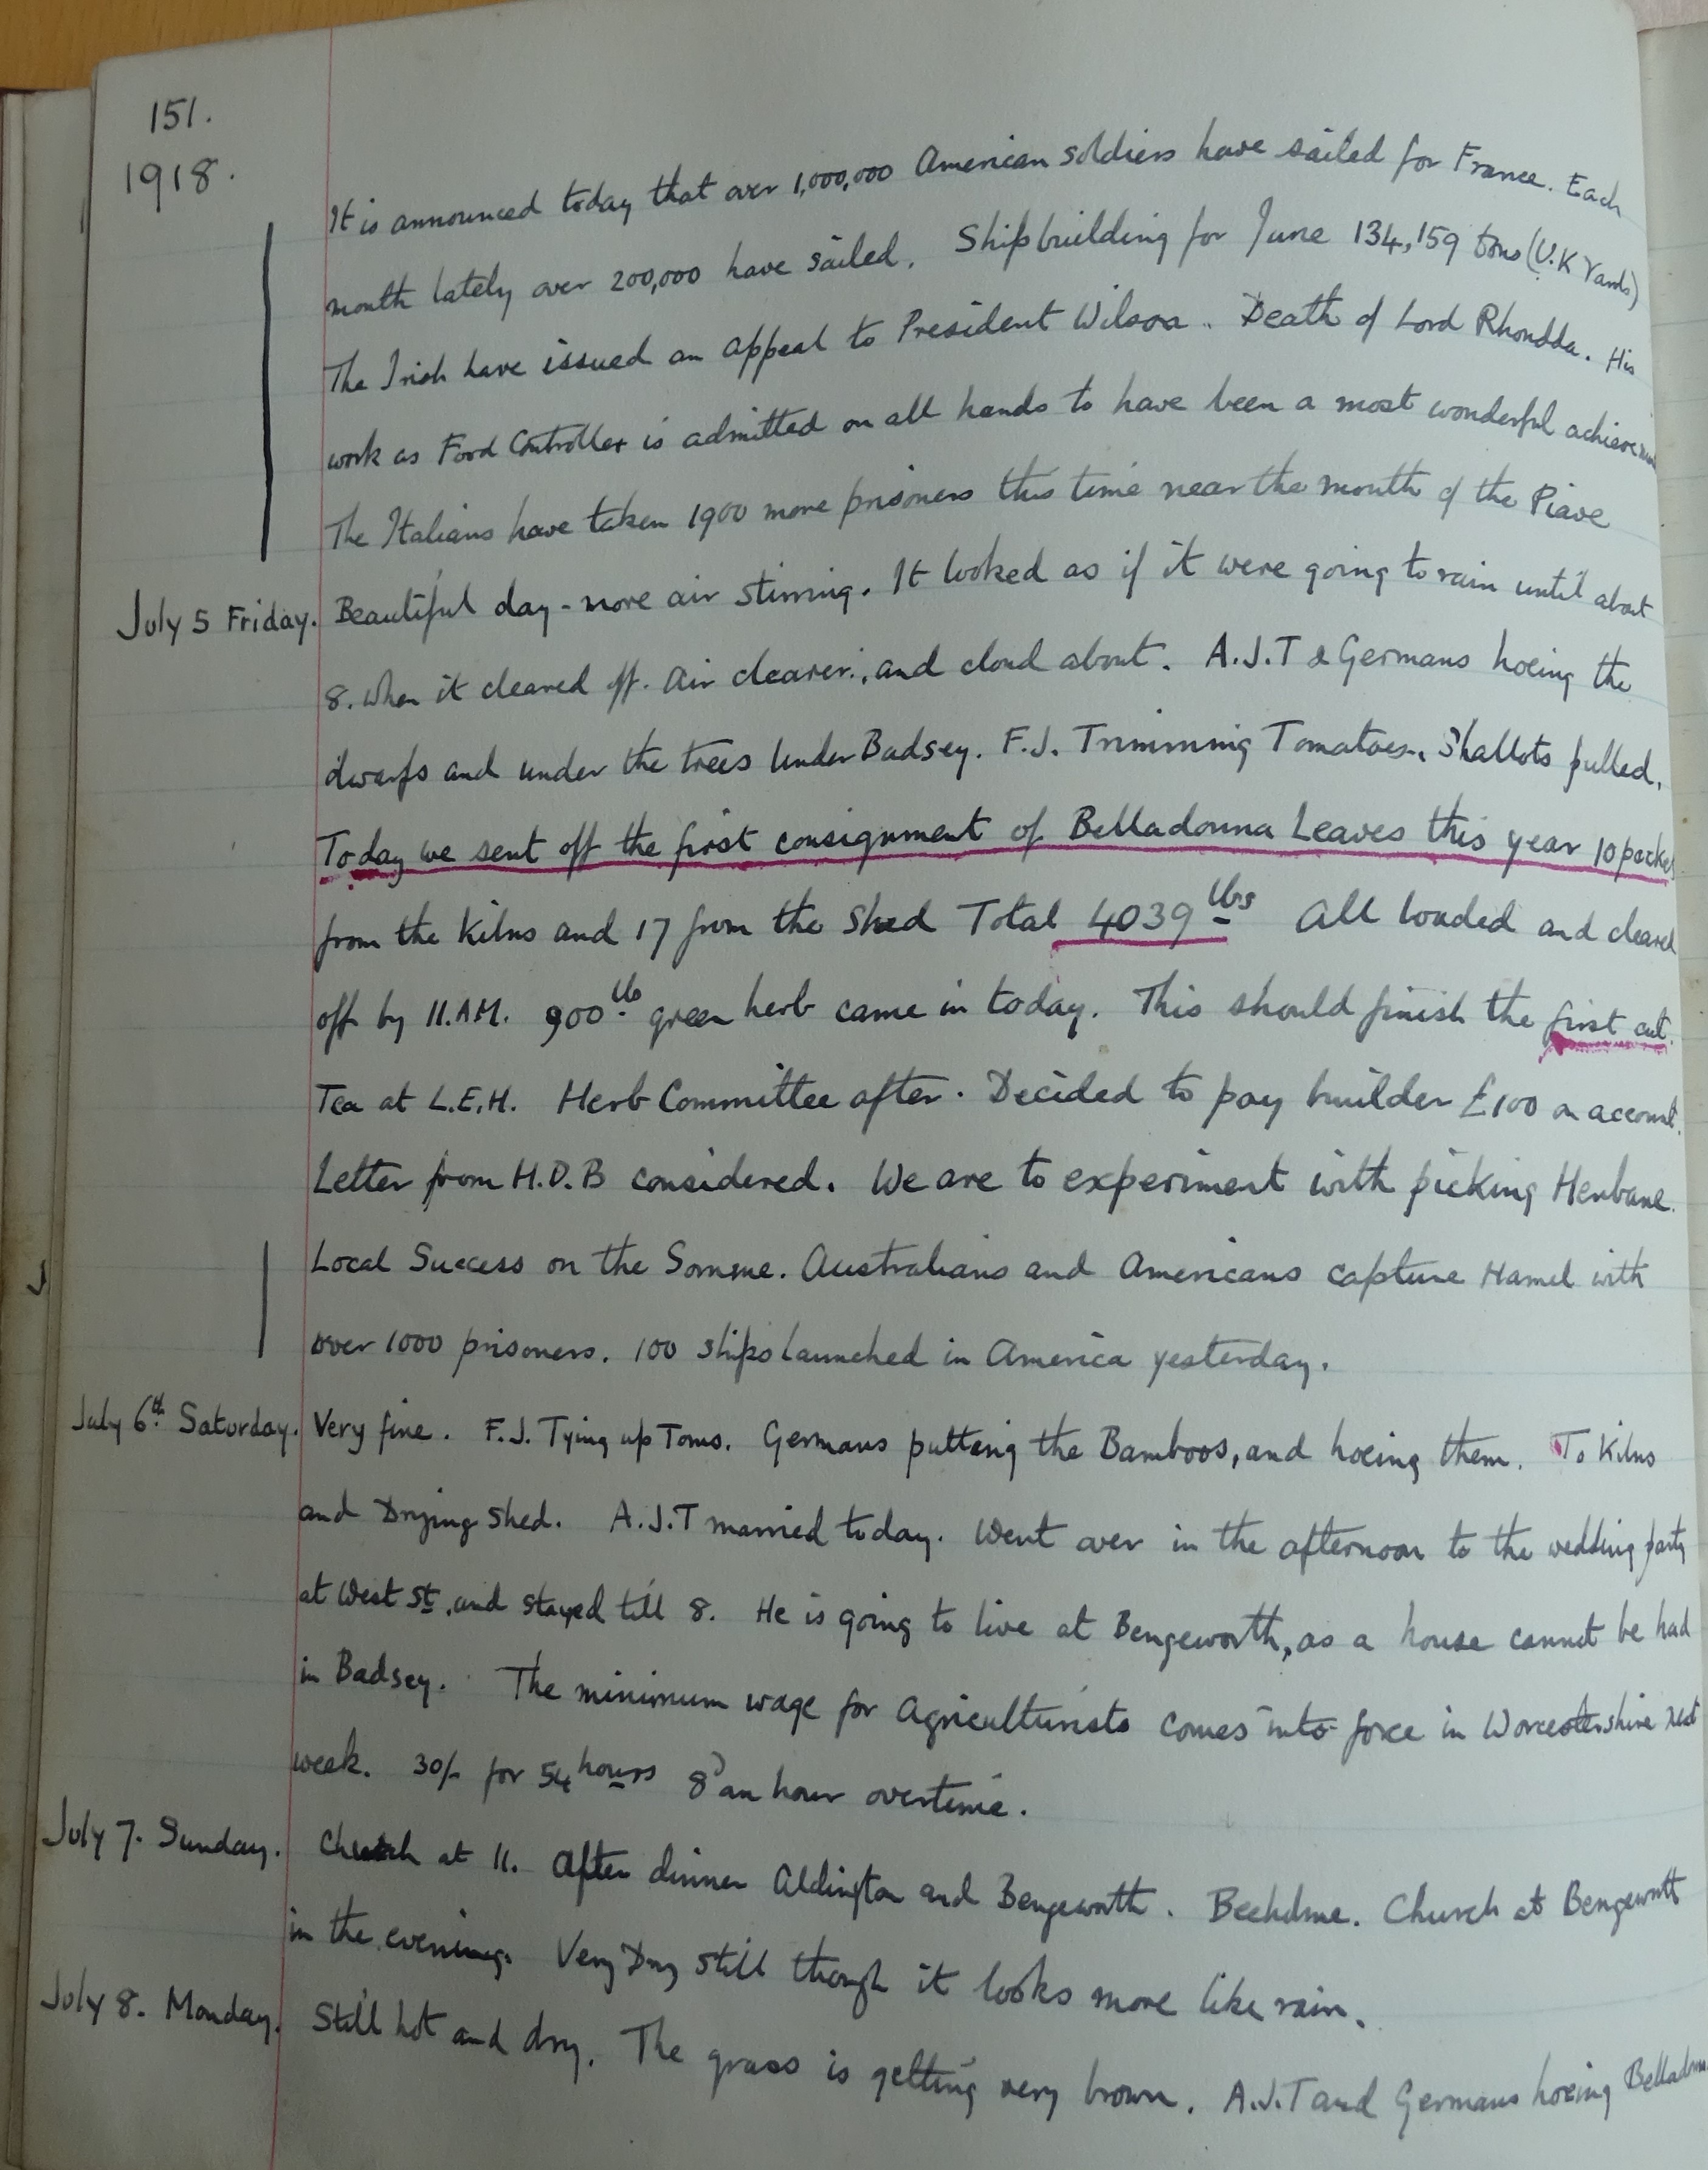 151.
1918.
It is announced today that over 1,000,000 American soldiers have sailed for France. Each
month lately over 200,000 have sailed. Shipbuilding for June 134,159 tons (U.K Yards)
The Irish have issued an appeal to President Wilson. Death of Lord Rhondda. His
work as Food Controller is admitted on all hands to have been a most wonderful
The Italians have taken 1900 more prisoners this time near the mouth of the Piave
July 5 Friday. Beautiful day - more air stirring. It looked as if it were going to rain until about
8. When it cleared off. Air clearer, and cloud about. A.J.T & Germans hoeing the
dwarfs and under the trees Under Badsey. F.J. Trimming Tomatoes. Shallots pulled.
Today we sent off the first consignment of Belladonna Leaves this year 10
from the Kilns and 17 from the Shed Total 4039 lbs All loaded and cleared
off by 11.AM. 900 lbs green herb came in today. This should finish the first cut.
Tea at L.E.H. Herb Committee after. Decided to pay builder £100 on account.
Letter from H.D.B considered. We are to experiment with picking Henbane.
Local Success on the Somme. Australians and Americans capture Hamel with
over 1000 prisoners. 100 ships launched in America yesterday.
July 6th Saturday. Very fine. F.J. Tying up Toms. Germans putting the Bamboos, and hoeing them. To Kilns
and Drying Shed. A.J.T married today. Went over in the afternoon to the wedding party
at West St. and stayed till 8. He is going to live at Bengeworth, as a house cannot be had
in Badsey. The minimum wage for Agriculturists comes into force in Worcestershire next
week. 30/- for 54 hours 8d an hour overtime.
July 7. Sunday. Church at 11. After dinner Aldington and Bengeworth. Beeholme. Church at Bengeworth
in the evening. Very Dry still though it looks more like rain.
July 8. Monday. Still hot and dry. The grass is getting very brown. A.J.T and Germans hoeing Belladonna